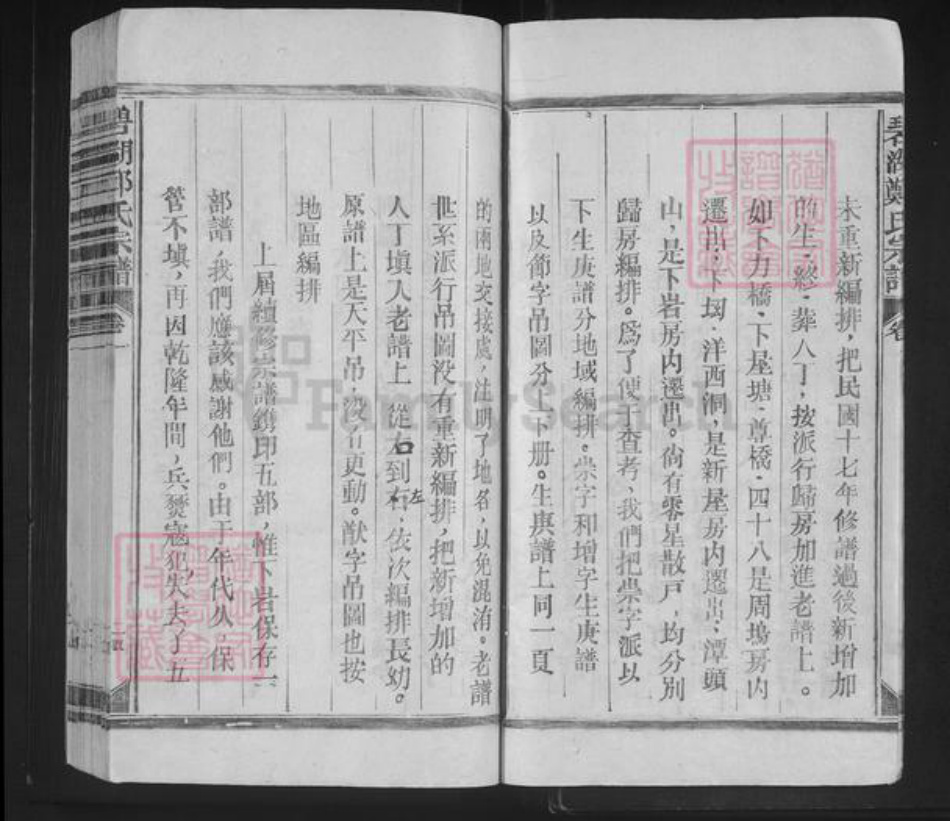 碧湖鄭氏宗譜
卷
未重新編排，把民國十七年修譜過後新增加
的生．終．葬人丁，按派行歸房加進老譜上。
如下力橋．下屋塘．尊橋．四十八是周塢房内
遷出；下㘭．洋西洞，是新屋房内遷出；潭頭
山，是下岩房内遷出。尙有零星散戶，均分別
歸房編排。爲了便于查考，我們把崇字派以
下生庚譜分地域編排。崇字和增字生庚譜
以及節字吊圖分上下册。生庚譜上同一頁
的兩地交接處，注明了地名，以免混淆。老譜
世系派行吊圖没有重新編排，把新增加的
人丁塡入老譜上，從右到左，依次編排長幼。
原譜上是天平吊，没有更動。猷字吊圖也按
地區編排
上屆續修宗譜鐫印五部，惟下岩保存一
部譜，我們應該感謝他們。由于年代久，保
管不塡，再因乾隆年間，兵燹寇犯，失去了五
碧湖鄭氏宗譜
卷
FamilySearch